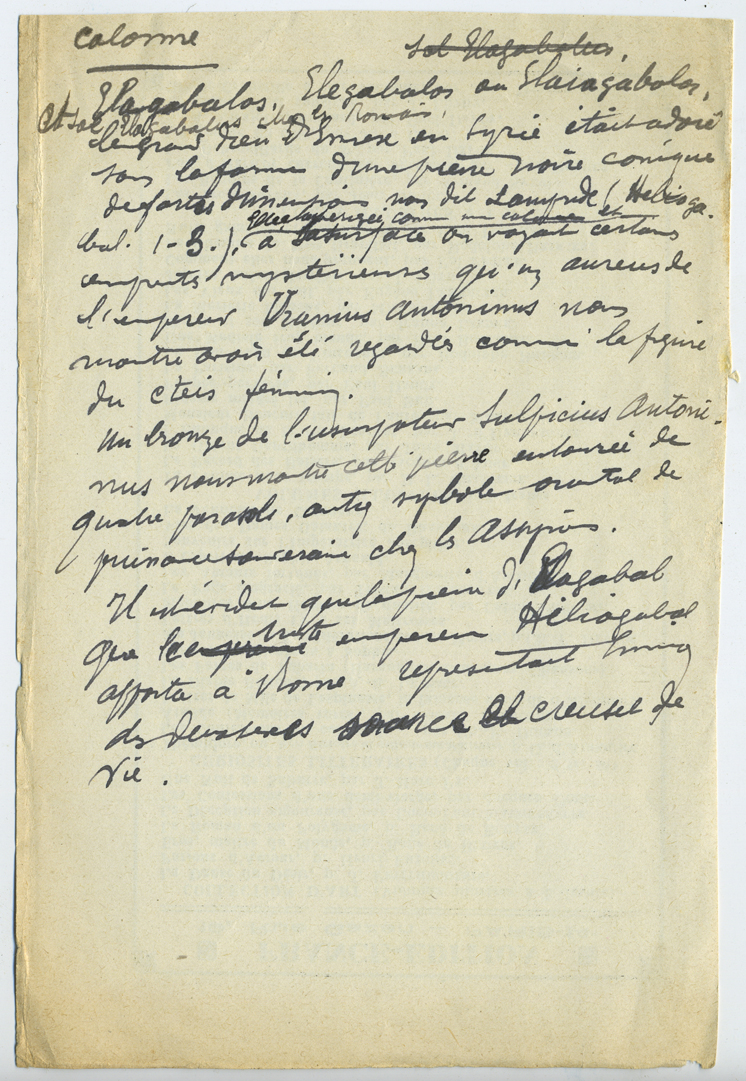 colonne
sol Elagabalus,
Elagabalos, Elegabalos ou Elaiagabalos,
et sol Elagabalus chez les Romains,
le grand dieu d'Emèse en Syrie était adoré
sous la forme d'une pierre noire conique
de fortes dimensions nous dit Lampride (Helioga-
elle émergeait comme une colonne et
bal. 1-3.), à sa surface on voyait certains
empreints mystérieuses qu'un aureus de
l'empereur Uranius Antoninus nous
montre avoir été regardés comme la figure
du cteis féminin.
Un bronze de l'usurpateur Sulpicius Antoni-
nus nous montre cette pierre entourée de
quatre parasols, autre symbole oriental de
puissance souveraine chez les Assyriens.
Il est évident que la pierre d'Elagabal
que l'empereur Héliogabal
apporta à Rome représentait
des source et creuset de
vie.